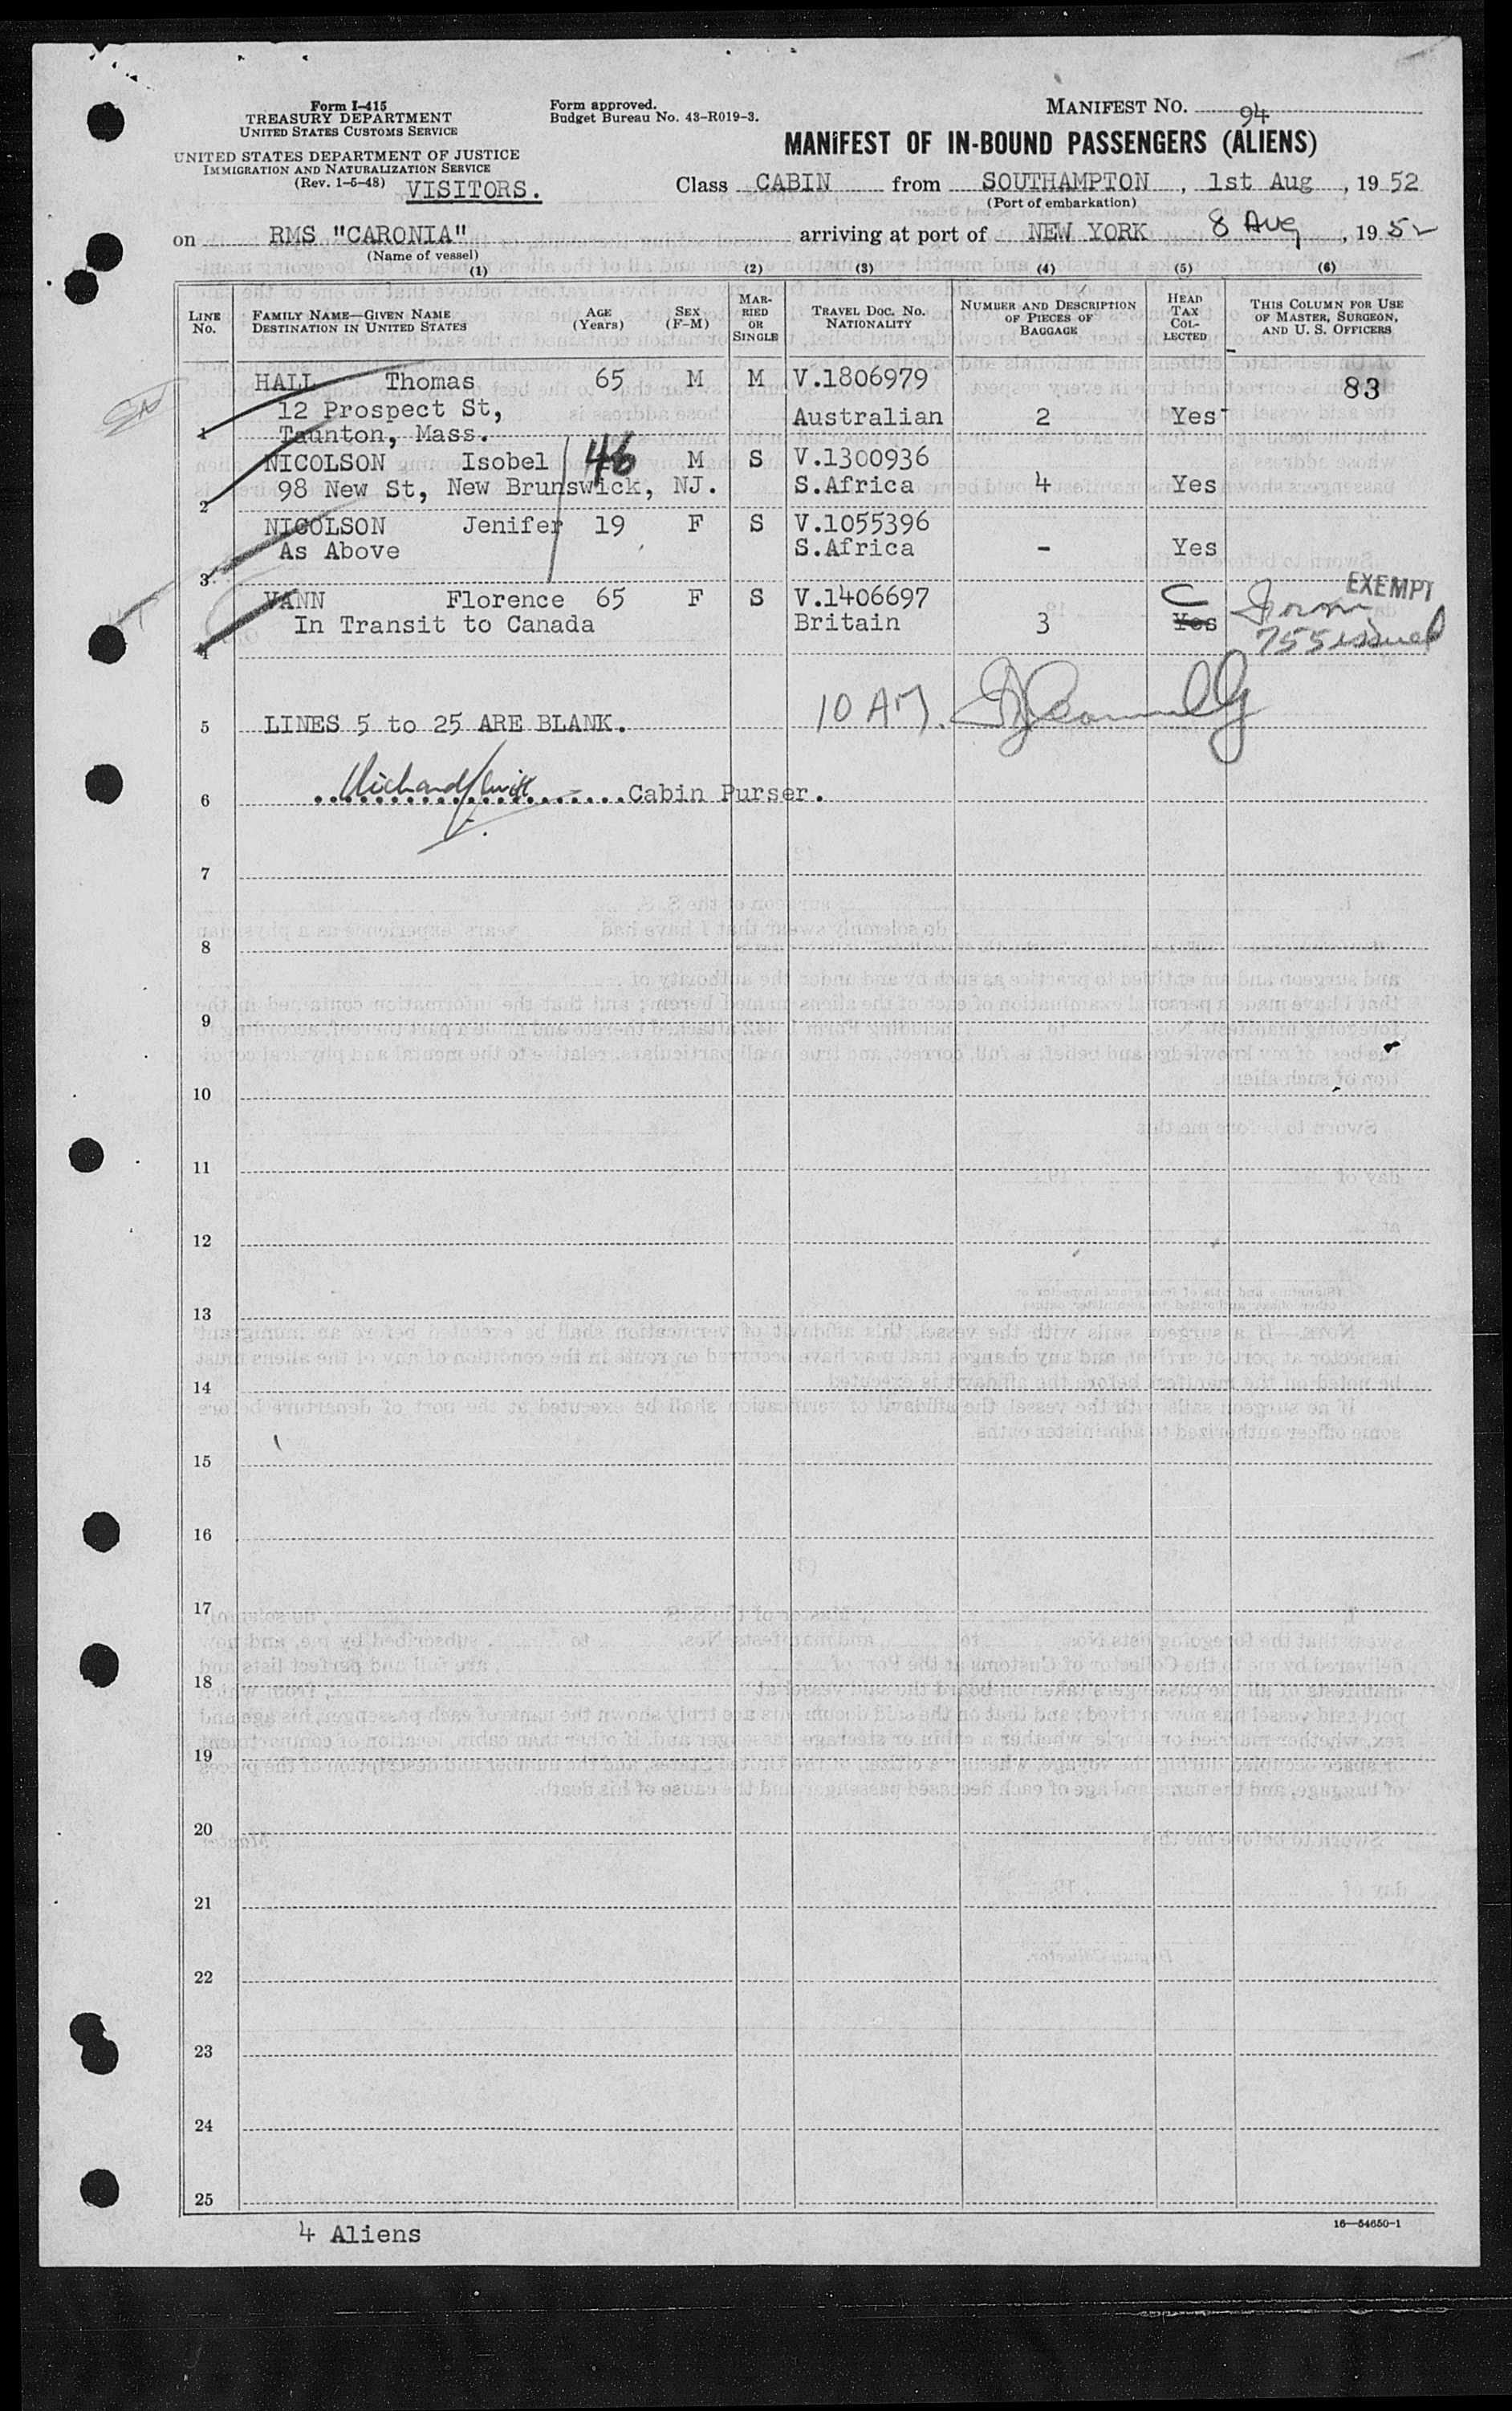 Form I-415
TREASURY DEPARTMENT
UNITED STATES CUSTOMS SERVICE
UNITED STATES DEPARTMENT OF JUSTICE
IMMIGRATION AND NATURALIZATION SERVICE
(Rev. 1-5-48)
VISITORS.
Form approved.
Budget Bureau No. 43-R019-3.
MANIFEST NO. 94
MANIFEST OF IN-BOUND PASSENGERS (ALIENS)
Class CABIN from SOUTHAMPTON, 1st Aug, 1952
(Port of embarkation)
on RMS "CARONIA" arriving at port of NEW YORK 8 Aug, 1952
(Name of vessel)
(1) (2) (3) (4) (5) (6)
LINE No. FAMILY NAME—GIVEN NAME DESTINATION IN UNITED STATES AGE (Years) SEX (F-M) MARRIED OR SINGLE TRAVEL DOC. NO. NATIONALITY NUMBER AND DESCRIPTION OF PIECES OF BAGGAGE HEAD TAX COLLECTED THIS COLUMN FOR USE OF MASTER, SURGEON, AND U. S. OFFICERS
HALL Thomas 65 M M V.1806979 83
12 Prospect St, Australian 2 Yes
1 Taunton, Mass.
NICOLSON Isobel 46 M S V.1300936
98 New St, New Brunswick, NJ. S.Africa 4 Yes
2
NICOLSON Jenifer 19 F S V.1055396
As Above S.Africa - Yes
3
VANN Florence 65 F S V.1406697 C Form EXEMPT
In Transit to Canada Britain 3 Yes 755 issued
4
10 AM.
5 LINES 5 to 25 ARE BLANK.
6 Cabin Purser.
7
8
9
10
11
12
13
14
15
16
17
18
19
20
21
22
23
24
25
4 Aliens
16—54650-1